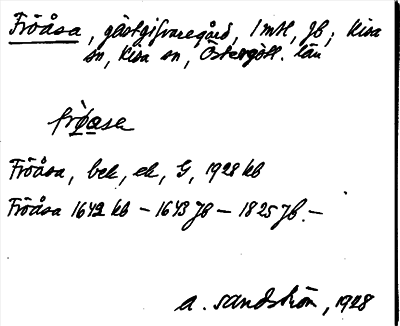 Fröåsa, gästgifvaregård, 1 mtl, Jb, Kisa
sn, Kisa sn, Östergötl. län
frø̀ɑsɑ
Fröåsa, bek, ek, G, 1928 kb
Fröåsa 1642 kb – 1643 Jb – 1825 Jb. –
A. Sandström, 1928